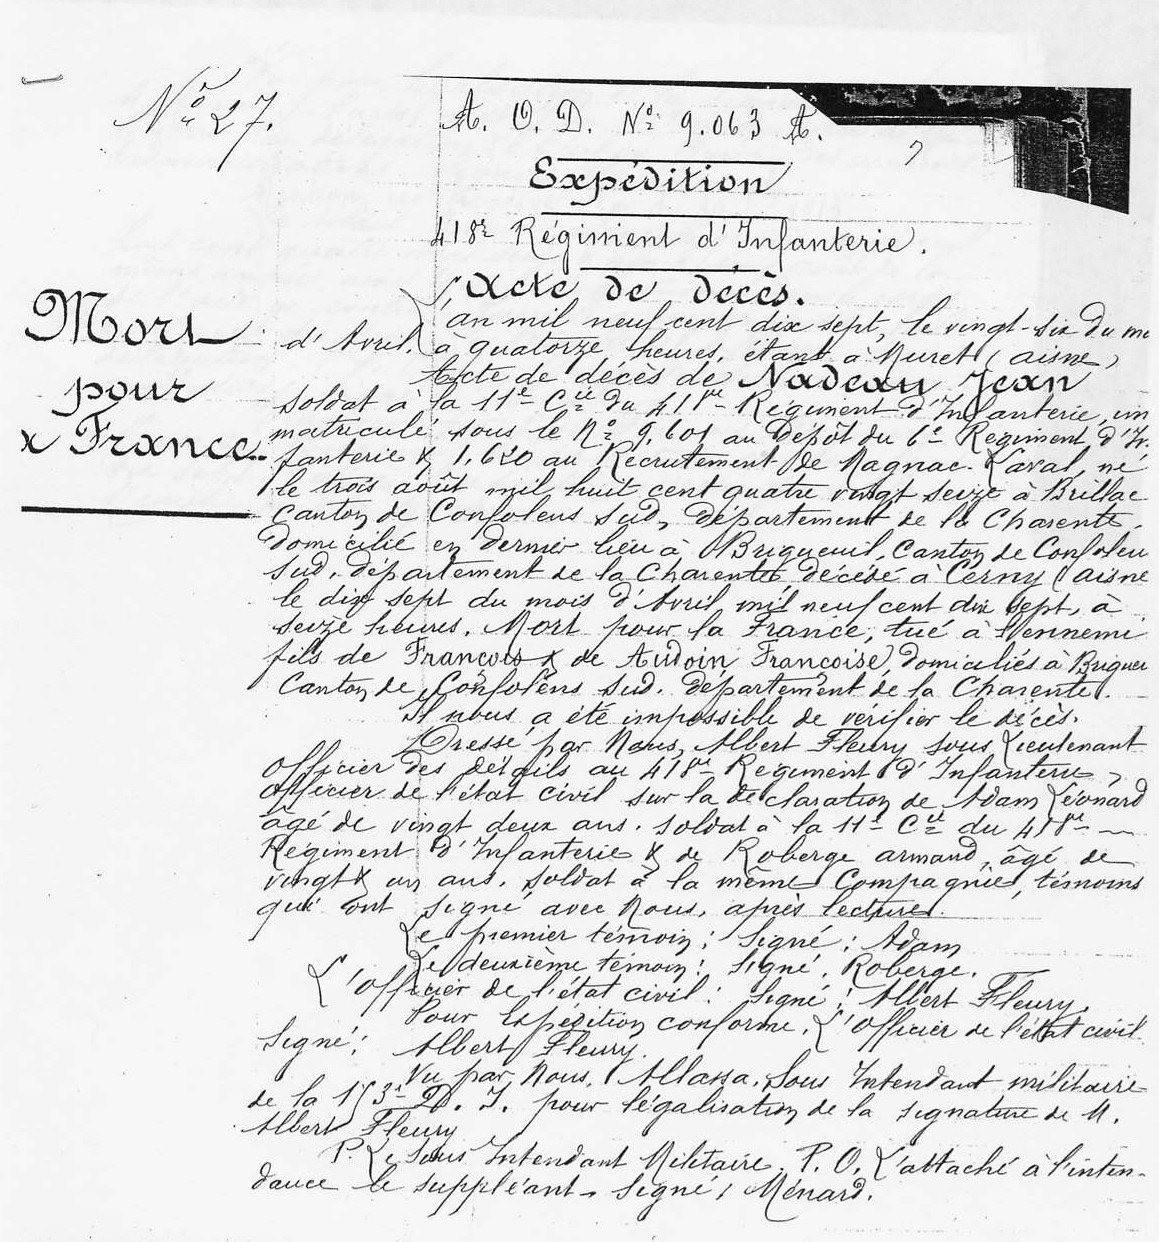 Nº 27.
A. O. D. Nº 9.063 A.
Expédition
418e Régiment d'Infanterie.
Acte de décès.
Mort
pour
France
L'an mil neuf cent dix sept, le vingt-six du
d'Avril, à quatorze heures, étant à Muret (Aisne)
Acte de décès de Nadeau Jean
soldat à la 11e Cie du 418me Régiment d'Infanterie, im
matriculé sous le Nº 9.601 au Dépôt du 6e Régiment d'In
fanterie & 1.620 au Recrutement de Magnac-Laval, né
le trois août mil huit cent quatre vingt seize à Brillac
Canton de Confolens sud, département de la Charente.
domicilié en dernier lieu à Brigueuil, Canton de Confolen
sud, département de la Charente décédé à Cerny (Aisne
le dix sept du mois d'Avril mil neuf cent dix sept, à
seize heures, Mort pour la France, tué à l'ennemi
fils de François & de Audoin Françoise, domiciliés à Brigueu
Canton de Confolens sud, département de la Charente.
Il nous a été impossible de vérifier le décès.
Dressé par Nous, Albert Fleury sous Lieutenant
Officier des détails au 418me Régiment d'Infanterie,
Officier de l'état civil sur la déclaration de Adam Léonard
âgé de vingt deux ans, soldat à la 11e Cie du 418me
Régiment d'Infanterie & de Roberge armand, âgé de
vingt & un ans, soldat à la même Compagnie, témoins
qui ont signé avec Nous, après lecture.
Le premier témoin : Signé : Adam
Le deuxième témoin : Signé. Roberge.
L'officier de l'état civil : Signé : Albert Fleury.
Pour Expédition conforme, L'officier de l'état civil
Signé : Albert Fleury.
Vu par Nous, Allassa, Sous Intendant militaire
de la 153e D. I. pour légalisation de la signature de M.
Albert Fleury
P. Le Sous Intendant Militaire, P. O. L'attaché à l'inten-
dance le suppléant, Signé : Ménard.